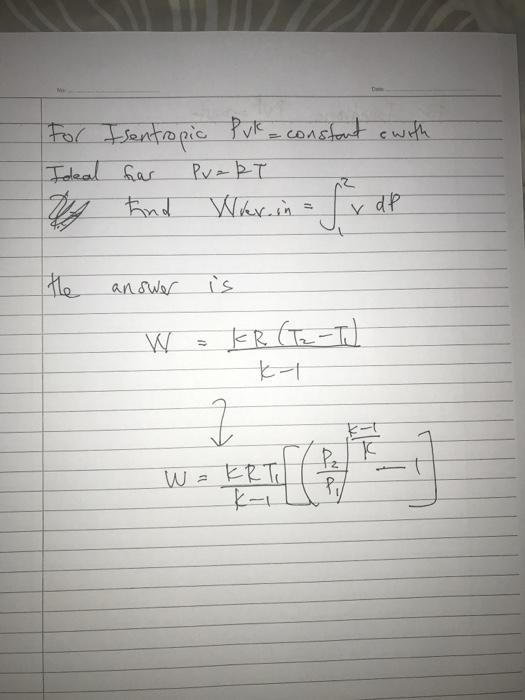 No.
Date
For Isentropic Pvk = constant with
Ideal Gas Pv = RT
Find Wrev.in = ∫₁² v dP
the answer is
W = kR (T₂ - T₁) / k-1
W = kRT₁ / k-1 [(P₂/P₁)^(k-1/k) - 1]